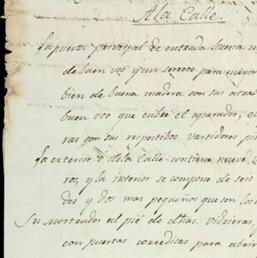 A la Calle.
La puerta principal de entrada buena
de buen uso y un secreto para mayor
bien de buena madera con sus
buen uso que cubre el aparador,
ras con sus respectivos vertidores
La exterior ó de la Calle contiene nueve
ros, y la interior se compone de seis
des y dos mas pequeños que son los
Su mostrador al pié de dichas vidrieras,
con puertas corredizas para cubrir